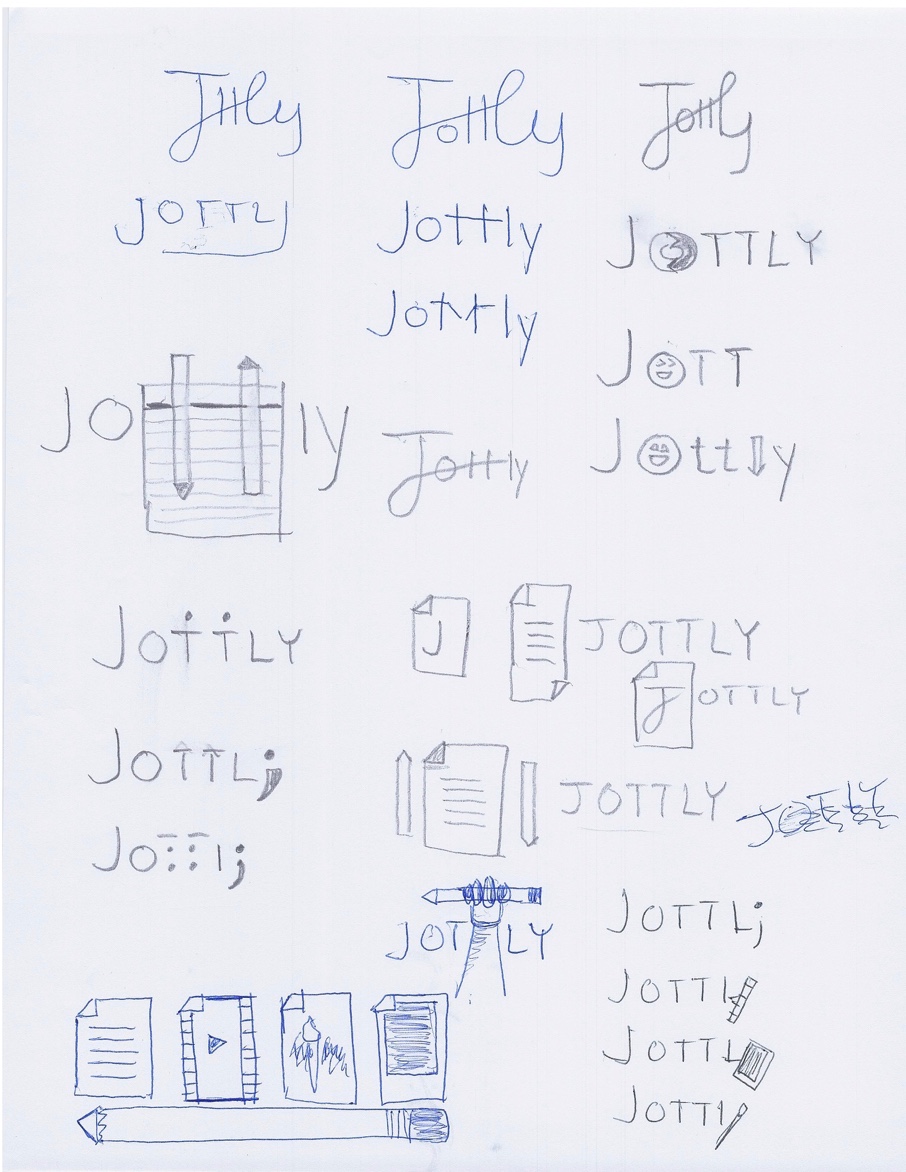 Jttly
Jottly
Jottly
JOTTLY
Jottly
JOTTLY
Jottly
JOTT
JO ly
Jottly
Jottly
JOTTLY
J
JOTTLY
JOTTLY
JOTTL;
JOTTLY
JO::l;
JOT LY
JOTTL;
JOTTL
JOTTL
JOTTl